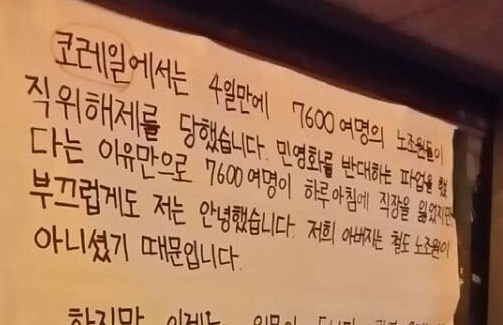 코레일에서는 4일만에 7600여명의 노조원들이
직위해제를 당했습니다. 민영화를 반대하는 파업을 했
다는 이유만으로 7600여명이 하루아침에 직장을 잃었지만
부끄럽게도 저는 안녕했습니다. 저희 아버지는 철도 노조원이
아니셨기 때문입니다.
하지만 이제는